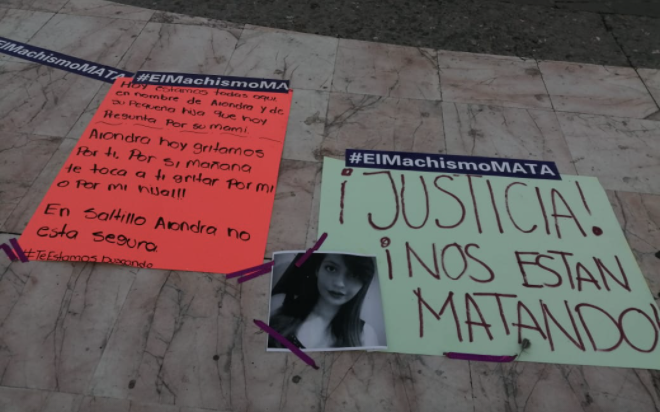 #ElMachismoMATA
#ElMachismoMA
Hoy estamos todas aqui
en nombre de Alondra y de
su Pequeña hija que hoy
Pregunta Por su mami.
Alondra hoy gritamos
Por ti. Por si mañana
te toca a ti gritar Por mi
o Por mi hija!!!
En Saltillo Alondra no
esta segura
#TeEstamosBuscando
#ElMachismoMATA
¡JUSTICIA!
¡NOS ESTAN
MATANDO!